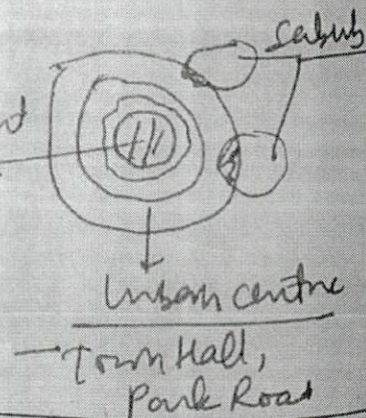 Sabub
Urban centre
— Town Hall,
Park Road